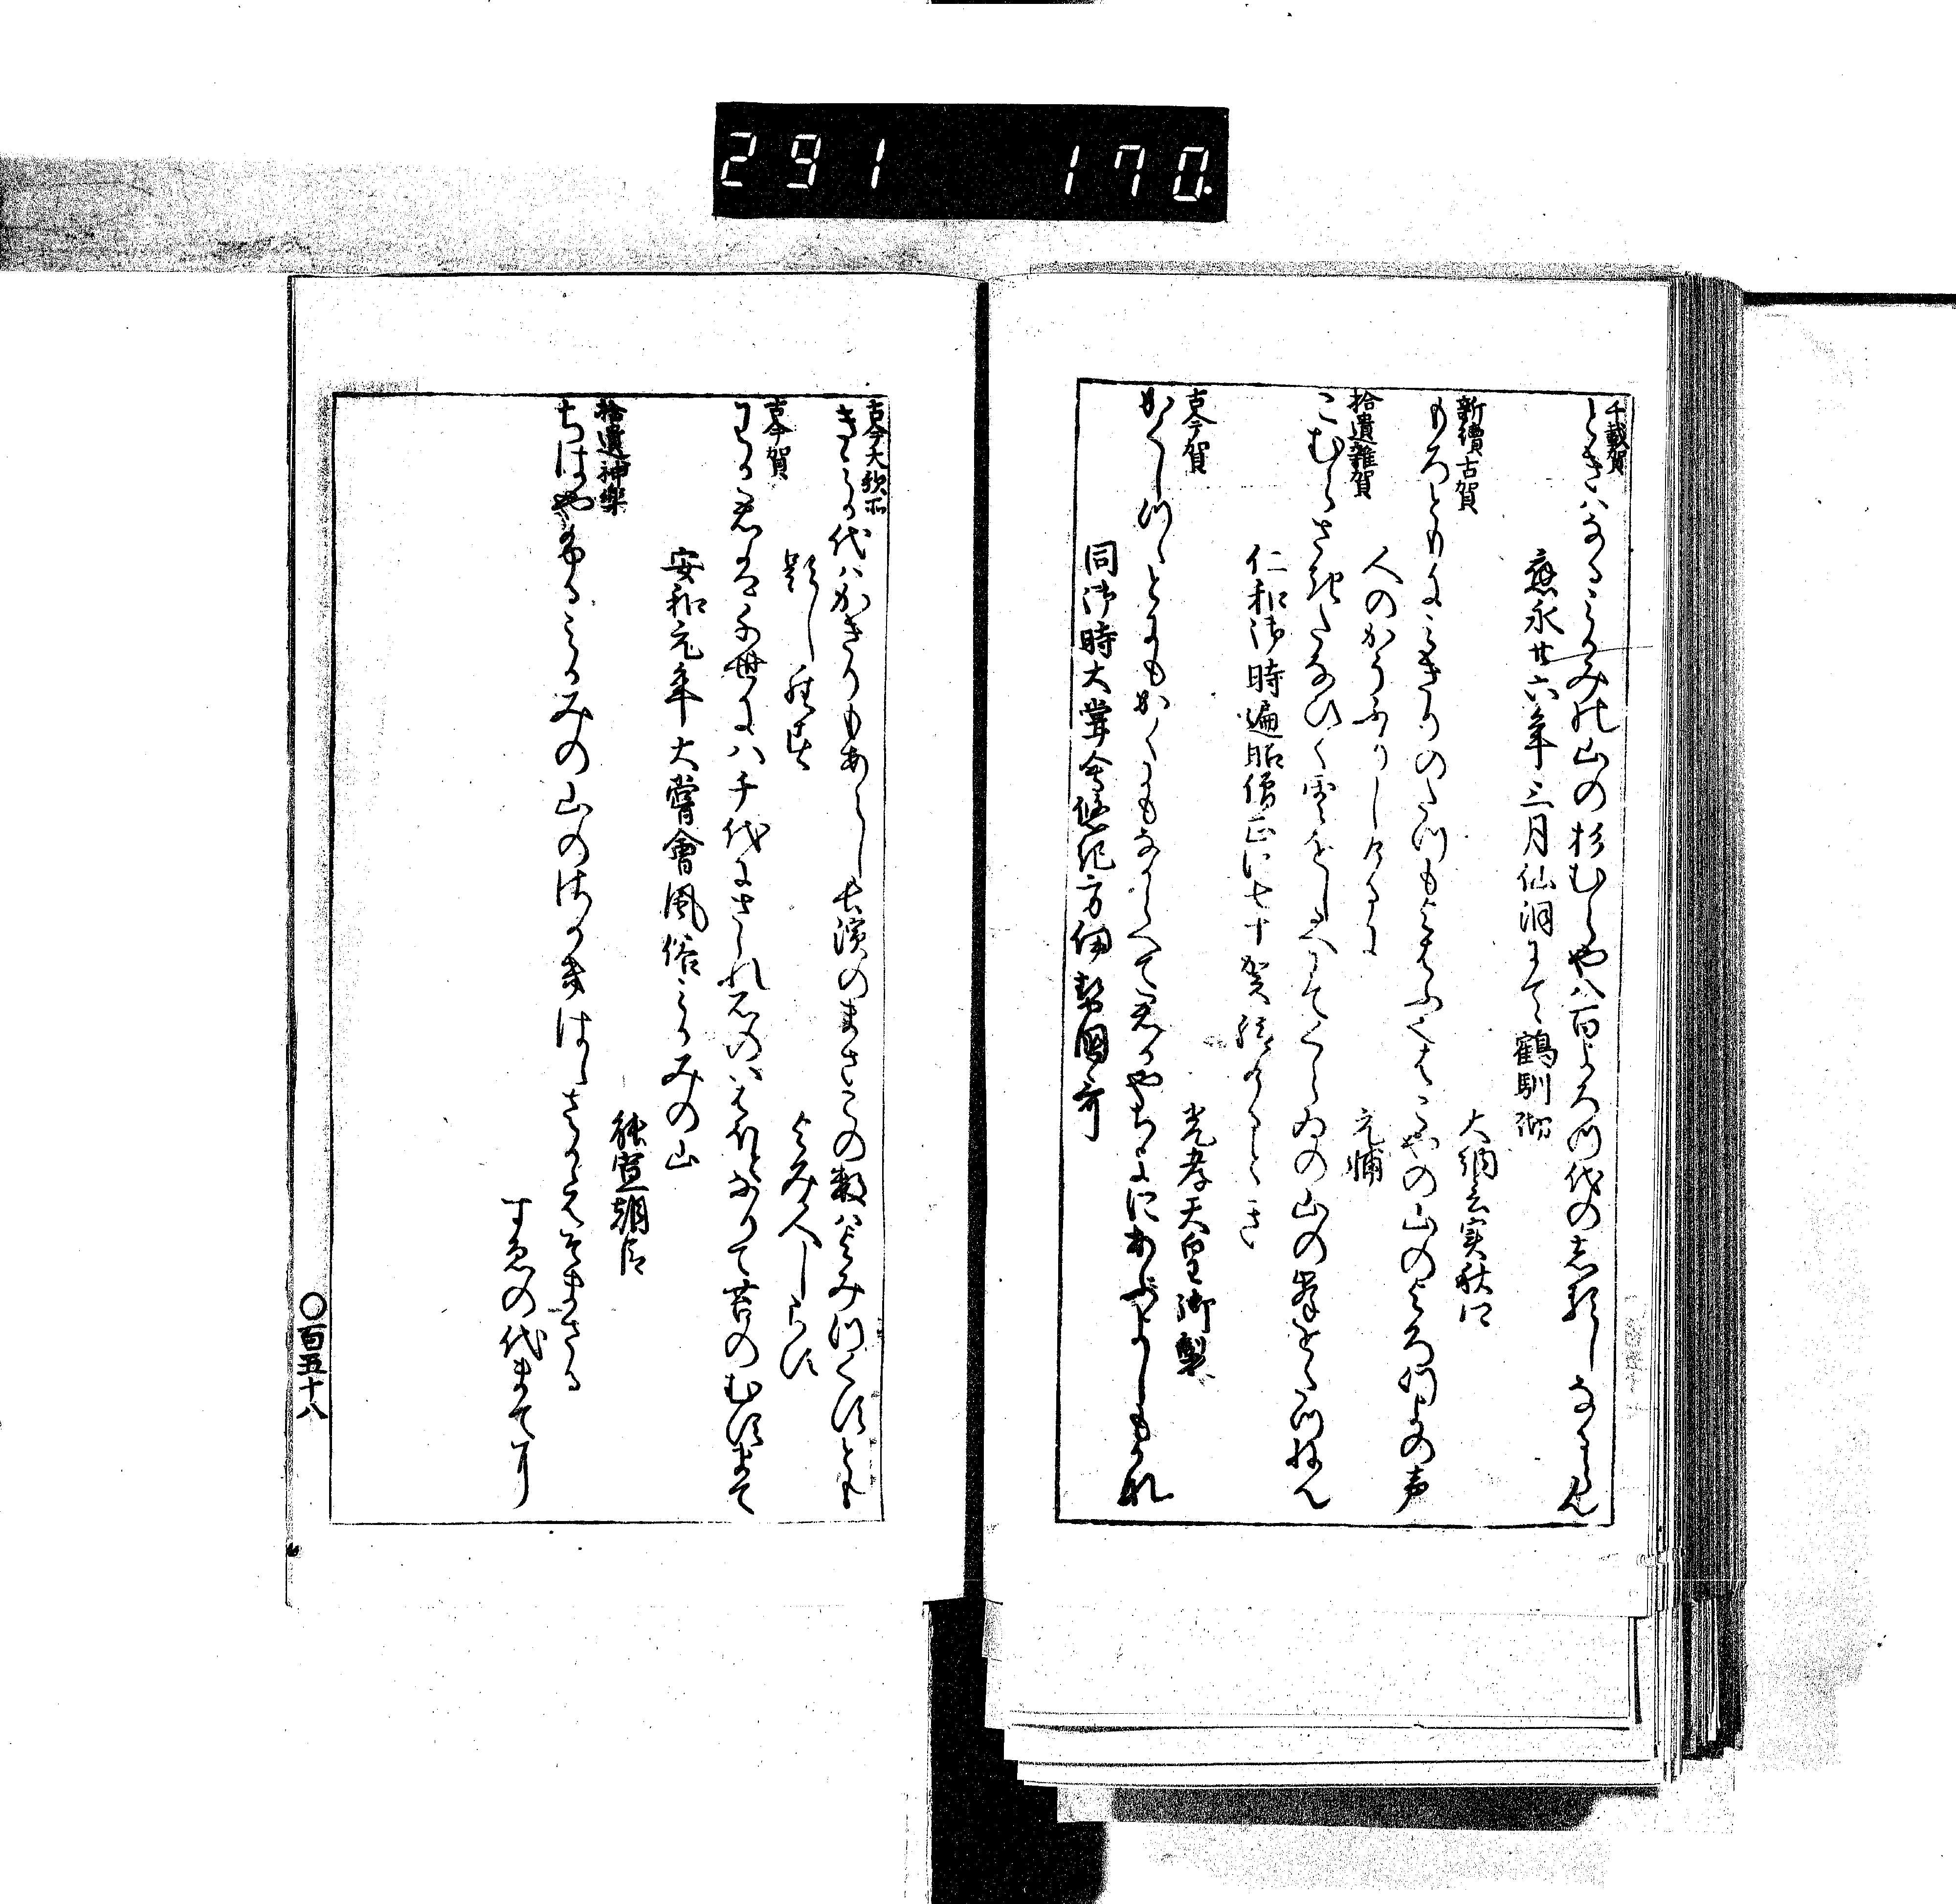 291 170.
千載賀
ときはなるみかみの山の杉むらや八百よろつ代のしるしなるらん
應永廿六年三月仙洞にて鶴馴砌
大納言実秋
新續古賀
もろともにみきりのたつもよはふ也はこやの山のよろつよの声
人のかうふりし侍るに
元輔
拾遺雑賀
こむらさきたなひく雲をしるへにてくらゐの山の峯をたつねん
仁和御時遍昭僧正に七十賀給けるとき
光孝天皇御製
古今賀
かくしつゝとにもかくにもなからへて君かやちよにあふよしもかな
同御時大嘗会悠紀方伊勢國哥
古今大歌所
きみか代はかきりもあらし長濱のまさこの数はよみつくすとも
題しらす
よみ人しらす
古今賀
わか君は千世に八千代にさゝれ石のいはほとなりて苔のむすまて
安和元年大嘗會風俗みかみの山
能宣朝臣
拾遺神楽
ちはやふるみかみの山のさか木はゝさかえそまさる
すゑの代まてに
〇百五十八